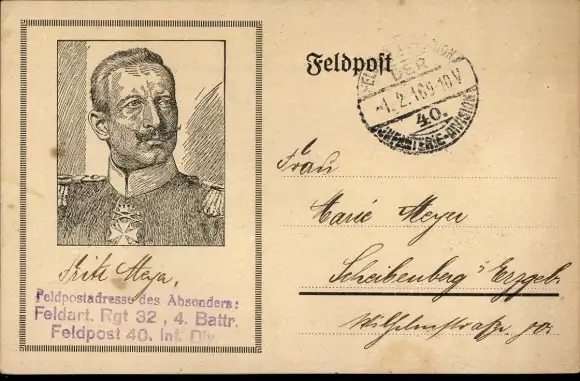 Feldpost
DER
-1.2.16 9-10V
40.
INFANTERIE-DIVISION
Frau
Marie Meyer
Scheibenberg i/Erzgeb.
Wilhelmstraße
Fritz Meyer,
Feldpostadresse des Absenders:
Feldart. Rgt 32, 4. Battr.
Feldpost 40. Inf. Div.